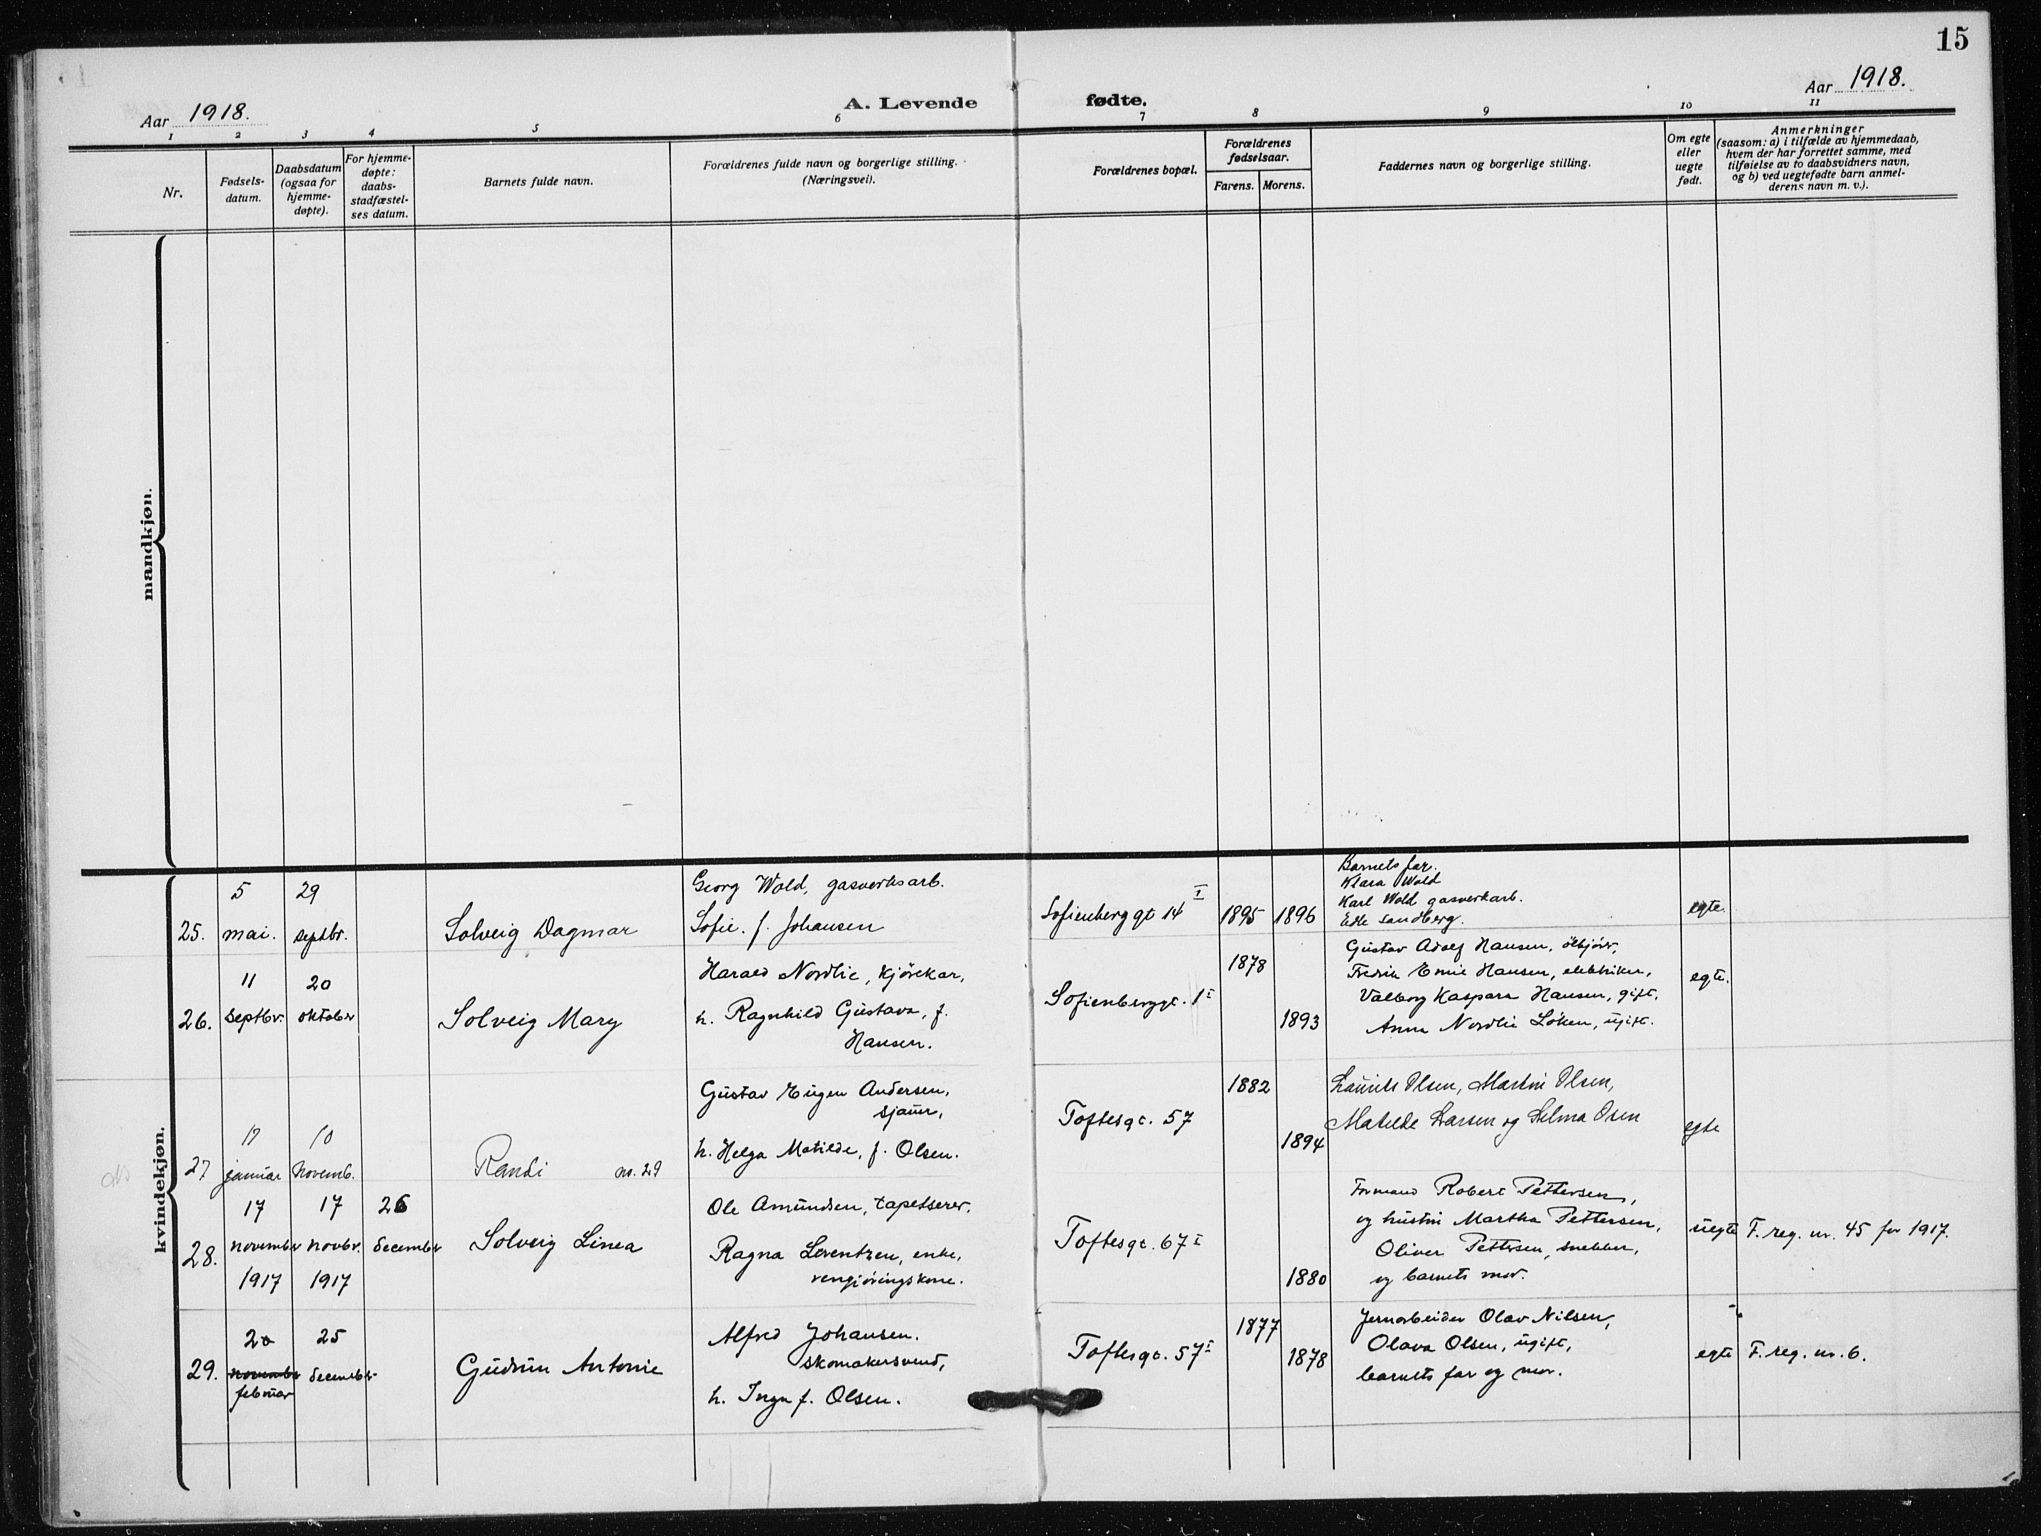 15
Aar 1918.
A. Levende fødte.
Aar 1918.
1 2 3 4 5 6 7 8 9 10 11
Nr.
Fødsels-
datum.
Daabsdatum
(ogsaa for
hjemme-
døpte).
For hjemme-
døpte:
daabs-
stadfæstel-
ses datum.
Barnets fulde navn.
Forældrenes fulde navn og borgerlige stilling.
(Næringsvei).
Forældrenes bopæl.
Forældrenes
fødselsaar.
Farens. Morens.
Faddernes navn og borgerlige stilling.
Om egte
eller
uegte
født.
Anmerkninger
(saasom: a) i tilfælde av hjemmedaab,
hvem der har forrettet samme, med
tilføielse av to daabsvidners navn,
og b) ved uegtefødte barn anmel-
derens navn m. v.).
mandkjøn.
kvindekjøn.
25.
5
mai.
29
septbr.
Solveig Dagmar
Georg Wold, gasverksarb.
Sofie. f. Johansen
Sofienberg gt 14 I
1895 1896
Barnets far.
Klara Wold
Karl Wold gasverkarb.
Edle Sandberg.
egte.
26.
11
septbr.
20
oktober
Solveig Mary
Harald Nordlie, kjørekar,
h. Ragnhild Gustava, f.
Hansen.
Sofienberggt. 1 I
1878
1893
Gustav Adolf Hansen,
Fredrik Emil Hansen, elektriker,
Valborg Kaspara Hansen, gift,
Anna Nordlie Løken, ugift.
egte.
27
januar
10
novemb.
Randi no. 29
Gustav Eugen Andersen,
sjauer,
h. Helga Matilde, f. Olsen.
Toftesgt. 57
1882
1894
Laurits Olsen, Martin Olsen,
Matilde Larsen og Selma Osen
egte
28.
17
november
1917
17
novbr.
1917
26
december
Solveig Linea
Ole Amundsen, tapetserer.
Ragna Lorentzen, enke,
rengjøringskone.
Toftesgt. 67 I
1880
Formand Robert Pettersen,
og hustru Martha Pettersen,
Oliver Pettersen, snekker,
og barnets mor.
uegte
F. reg. nr. 45 for 1917.
29.
20
november
februar
25
december
Gudrun Antonie
Alfred Johansen.
skomakersvend,
h. Inga f. Olsen.
Toftesgt. 57 I
1877
1878
Jernarbeider Olav Nilsen,
Olava Olsen, ugift,
barnets far og mor.
egte
F. reg. nr. 6.